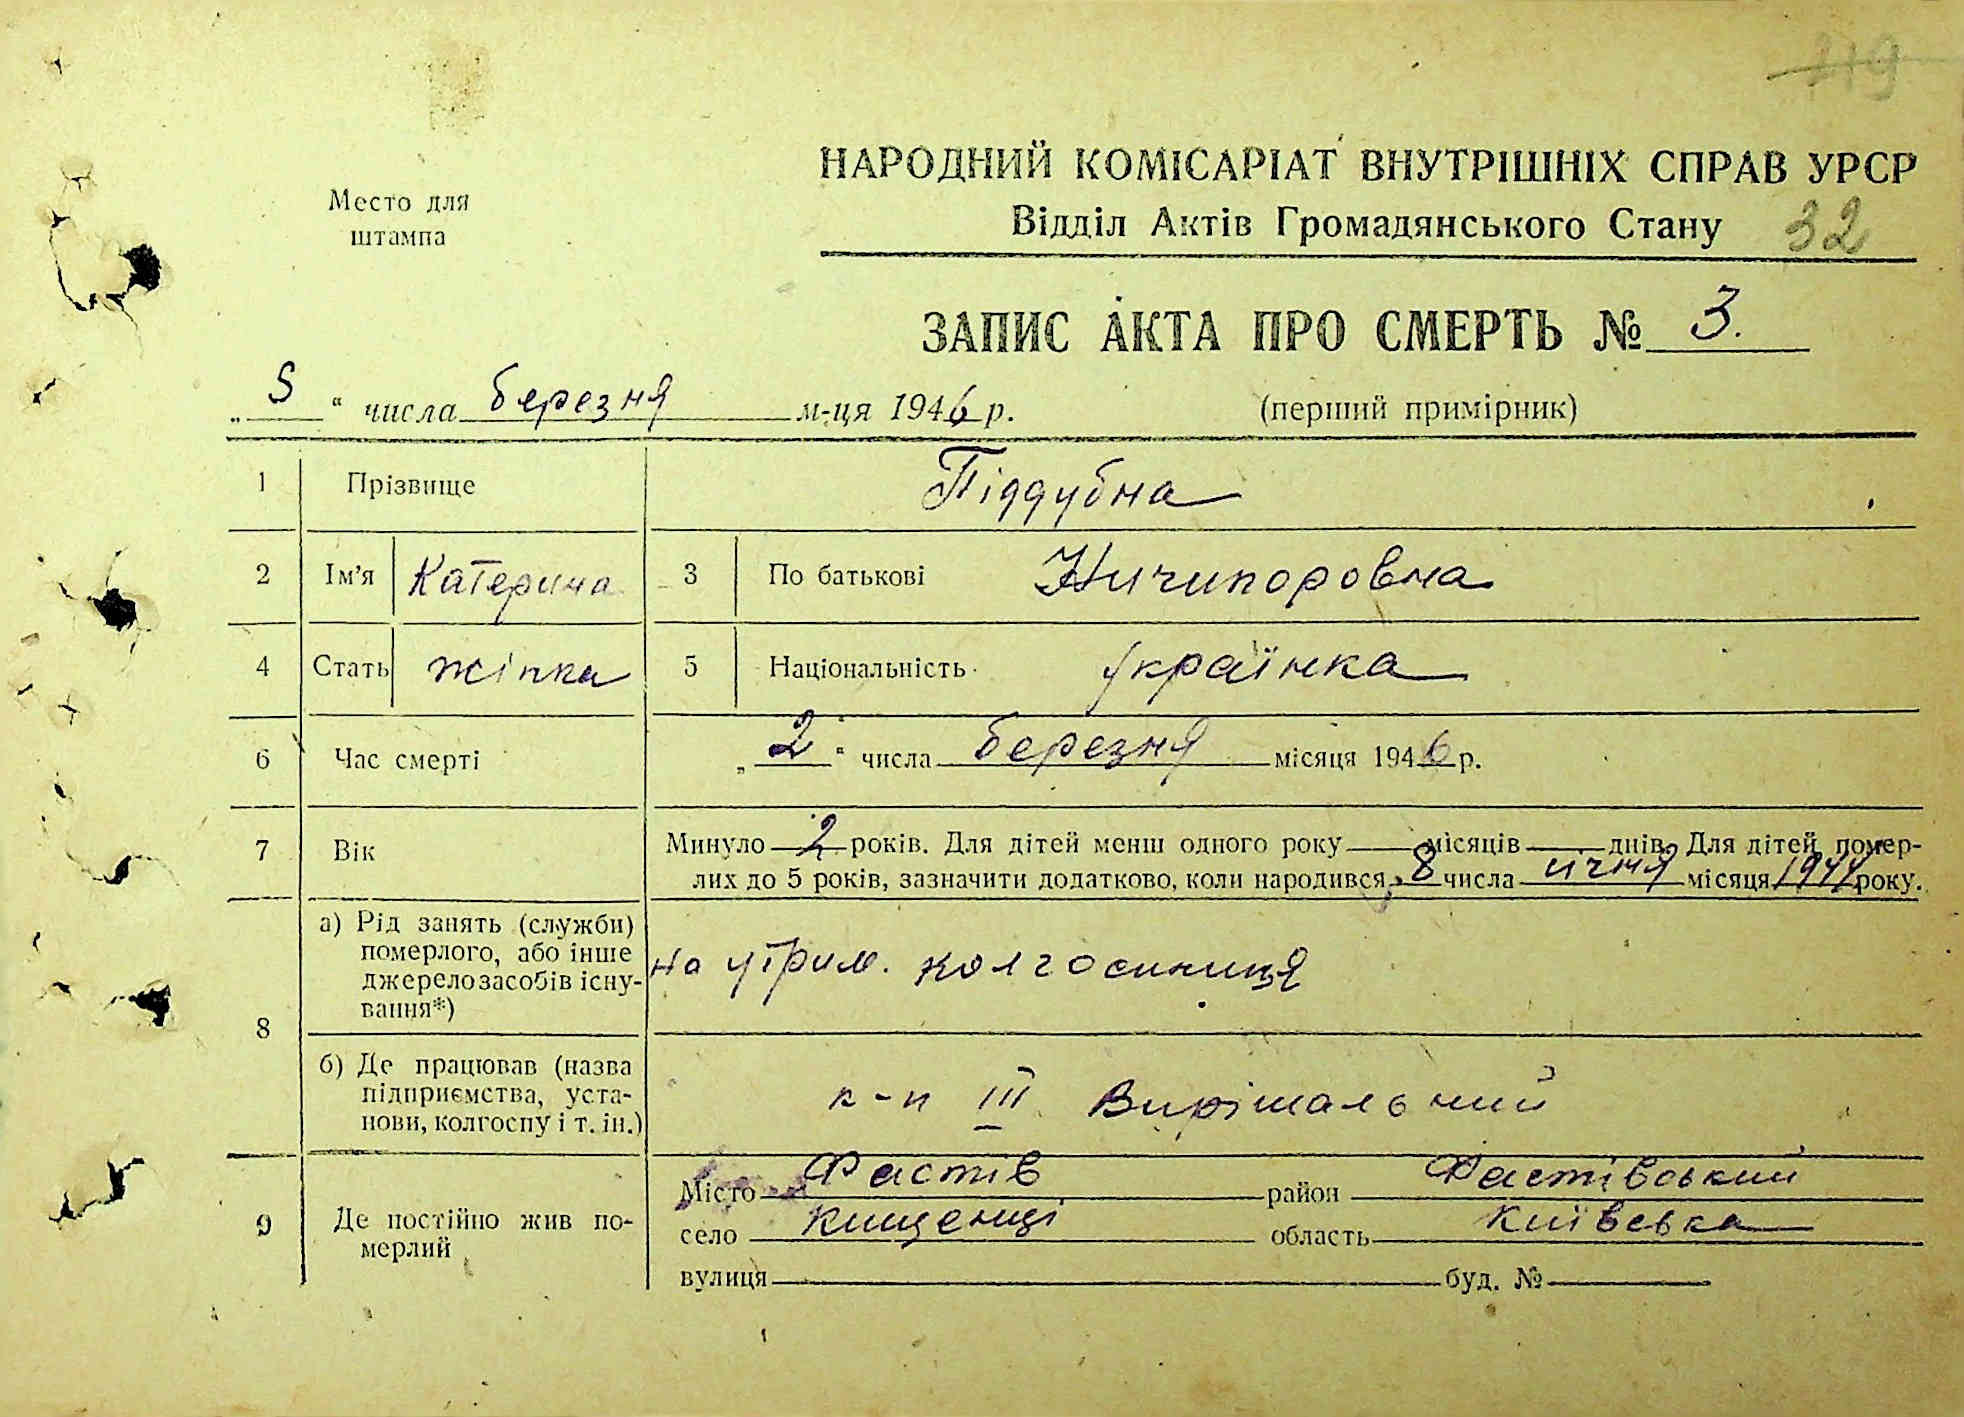 119
НАРОДНИЙ КОМІСАРІАТ ВНУТРІШНІХ СПРАВ УРСР
Место для
штампа
Відділ Актів Громадянського Стану 32
ЗАПИС АКТА ПРО СМЕРТЬ № 3.
„ 5 “ числа березня м-ця 1946 р. (перший примірник)
1 Прізвище Піддубна
2 Ім’я Катерина 3 По батькові Ничипоровна
4 Стать жінка 5 Національність українка
6 Час смерті „ 2 “ числа березня місяця 1946 р.
7 Вік Минуло 2 років. Для дітей менш одного року — місяців — днів. Для дітей помер-
лих до 5 років, зазначити додатково, коли народився „ 8 числа січня місяця 1944 року.
8 а) Рід занять (служби)
померлого, або інше
джерело засобів існу-
вання*)
на утрим. колгоспниця
б) Де працював (назва
підприємства, уста-
нови, колгоспу і т. ін.)
к-п III Вирішальний
9 Де постійно жив по-
мерлий
Місто Фастів район Фастівський
село область Київська
вулиця буд. №